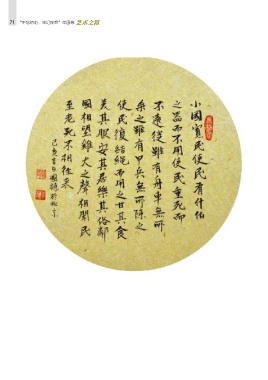 21
艺术之路
小國寡民使民有什伯
之器而不用使民重死而
不遠徙雖有舟車無所
乘之雖有甲兵無所陳之
使民復結繩而用之甘其食
美其服安其居樂其俗鄰
國相望雞犬之聲相聞民
至老死不相往來